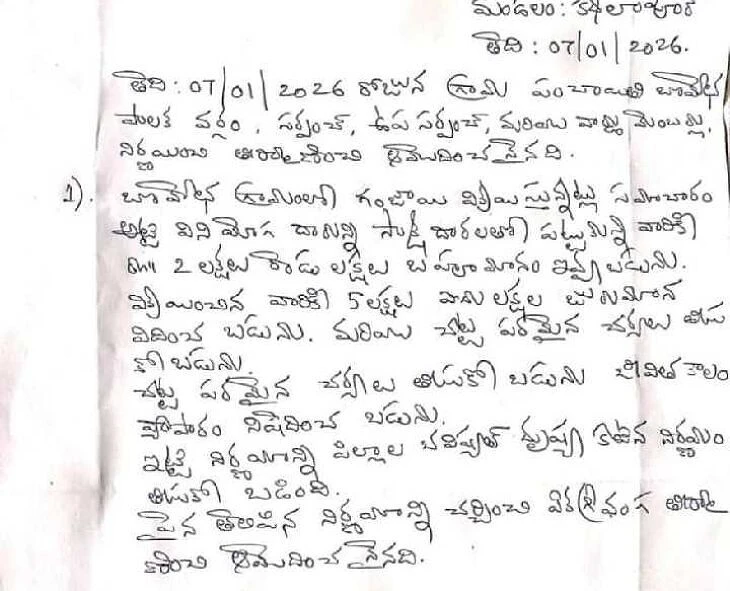 మండలం: కథలాపూర్
తేది: 07/01/2026.
తేది: 07/01/2026 రోజున గ్రామ పంచాయితి
పాలక వర్గం, సర్పంచ్, ఉప సర్పంచ్, మరియు వార్డు మెంబర్లు,
నిర్ణయించి తీర్మాణించి ఆమోదించ నైనది.
1). గ్రామంలో గంజాయి విక్రయిస్తున్నట్లు సమాచారం
అట్టి వినియోగ దారున్ని సాక్ష దారలతో పట్టుకున్న వారికి
2 లక్షలు రెండు లక్షలు బహుమానం ఇవ్వ బడును.
విక్రయించిన వారికి 5 లక్షల ఐదు లక్షల జులమాన
విదించ బడును. మరియు చట్ట పరమైన చర్యలు తీసు
కో బడును.
చట్ట పరమైన చర్యలు తీసుకో బడును జీవిత కాలం
వ్యాపారం నిషేదించ బడును.
ఇట్టి నిర్ణయాన్ని పిల్లాల భవిష్యత్ దృష్ట్యా కఠిన నిర్ణయం
తీసుకో బడింది.
పైన తెలిపిన నిర్ణయాన్ని చర్చించి ఏకగ్రీవంగ తీర్మా
ణించి ఆమోదించ నైనది.